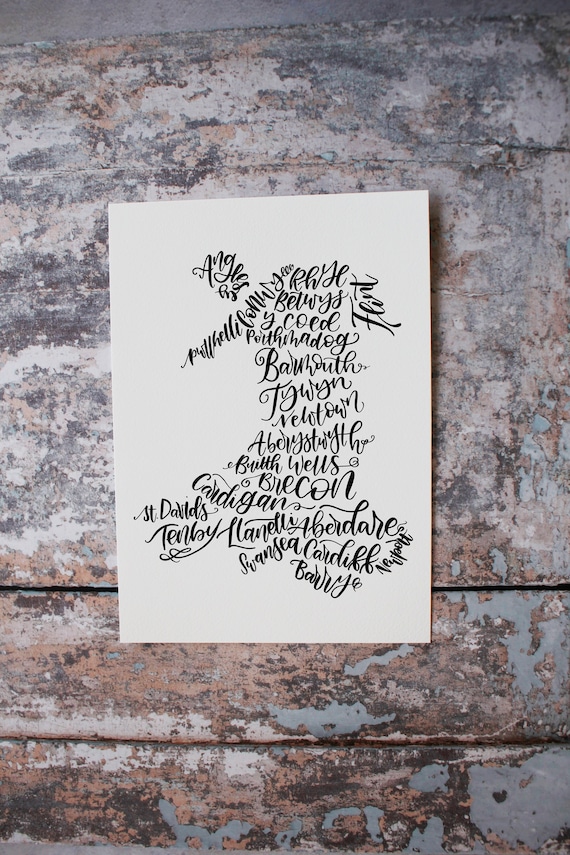 Anglesey
Conwy
Rhyl
Betwys
y coed
Flint
Pwllheli
Porthmadog
Barmouth
Tywyn
Newtown
Aberystwyth
Builth Wells
Brecon
Cardigan
St. David's
Tenby
Llanelli
Aberdare
Swansea
Cardiff
Newport
Barry